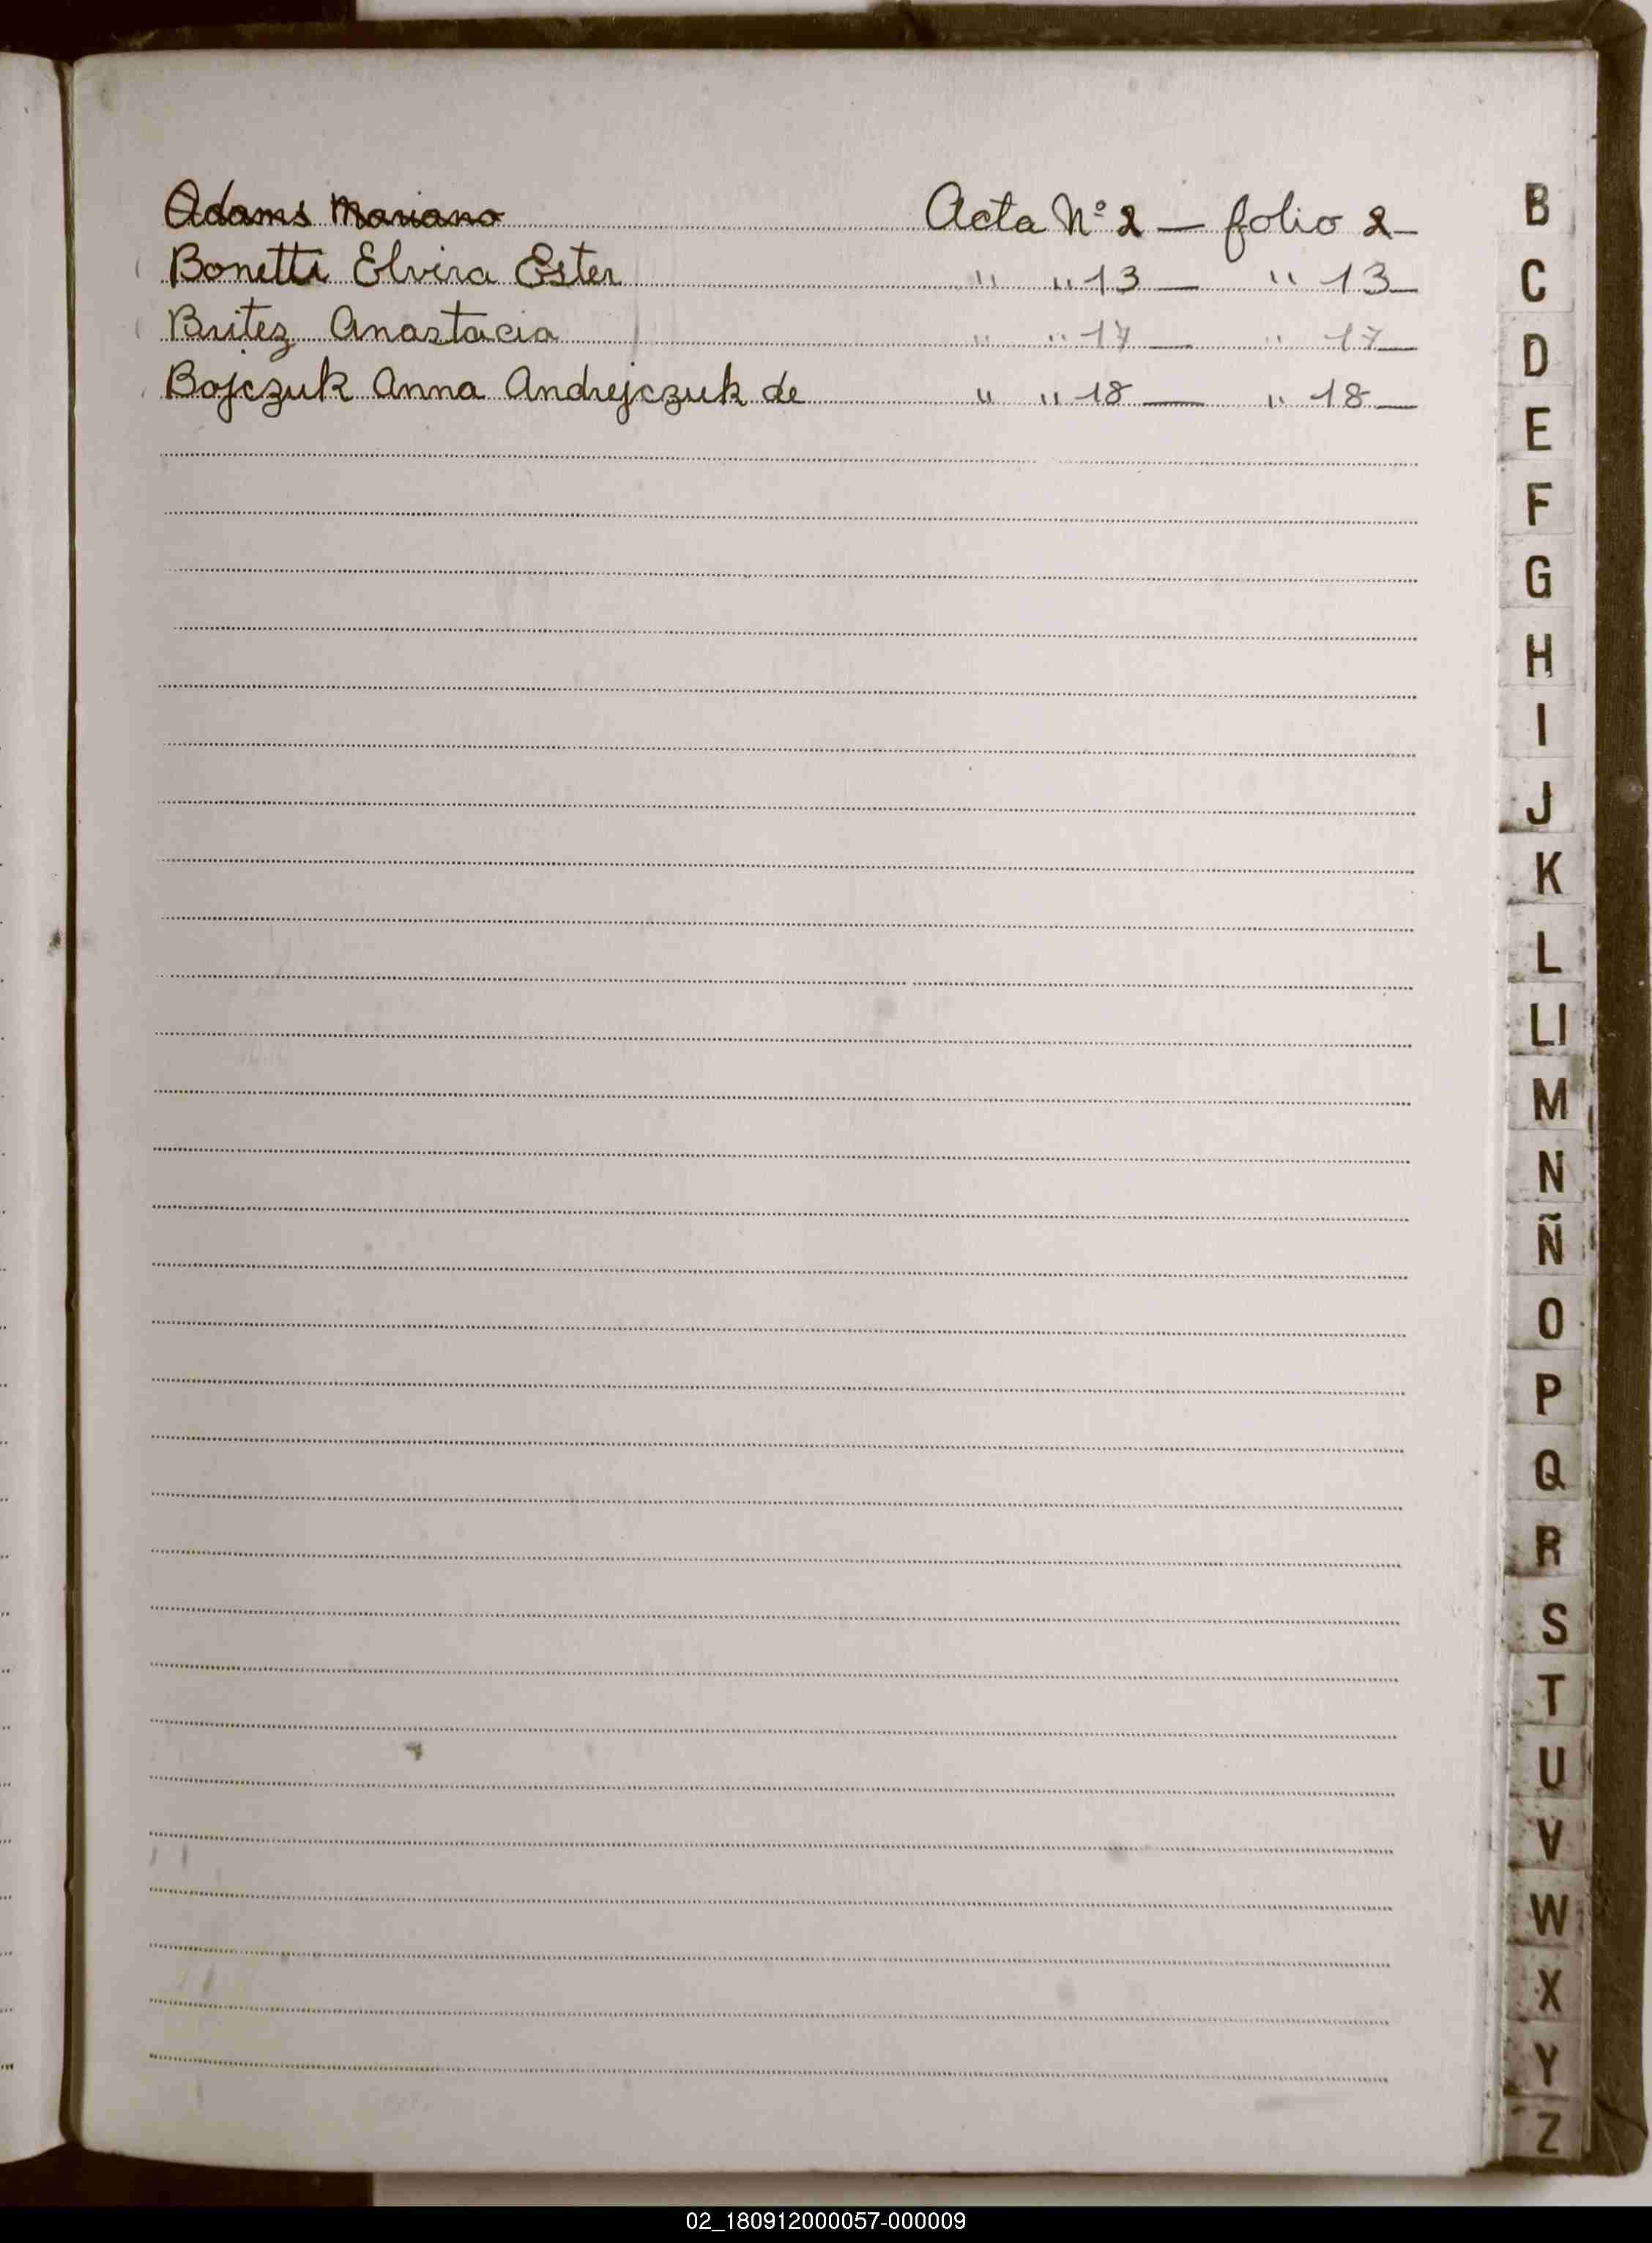 Adams Mariano Acta Nº 2 — folio 2—
Bonetti Elvira Ester " " 13 — " 13—
Britez Anastacia " " 17 — " 17—
Bojczuk Anna Andrejczuk de " " 18 — " 18—
B
C
D
E
F
G
H
I
J
K
L
Ll
M
N
Ñ
O
P
Q
R
S
T
U
V
W
X
Y
Z
02_180912000057-000009